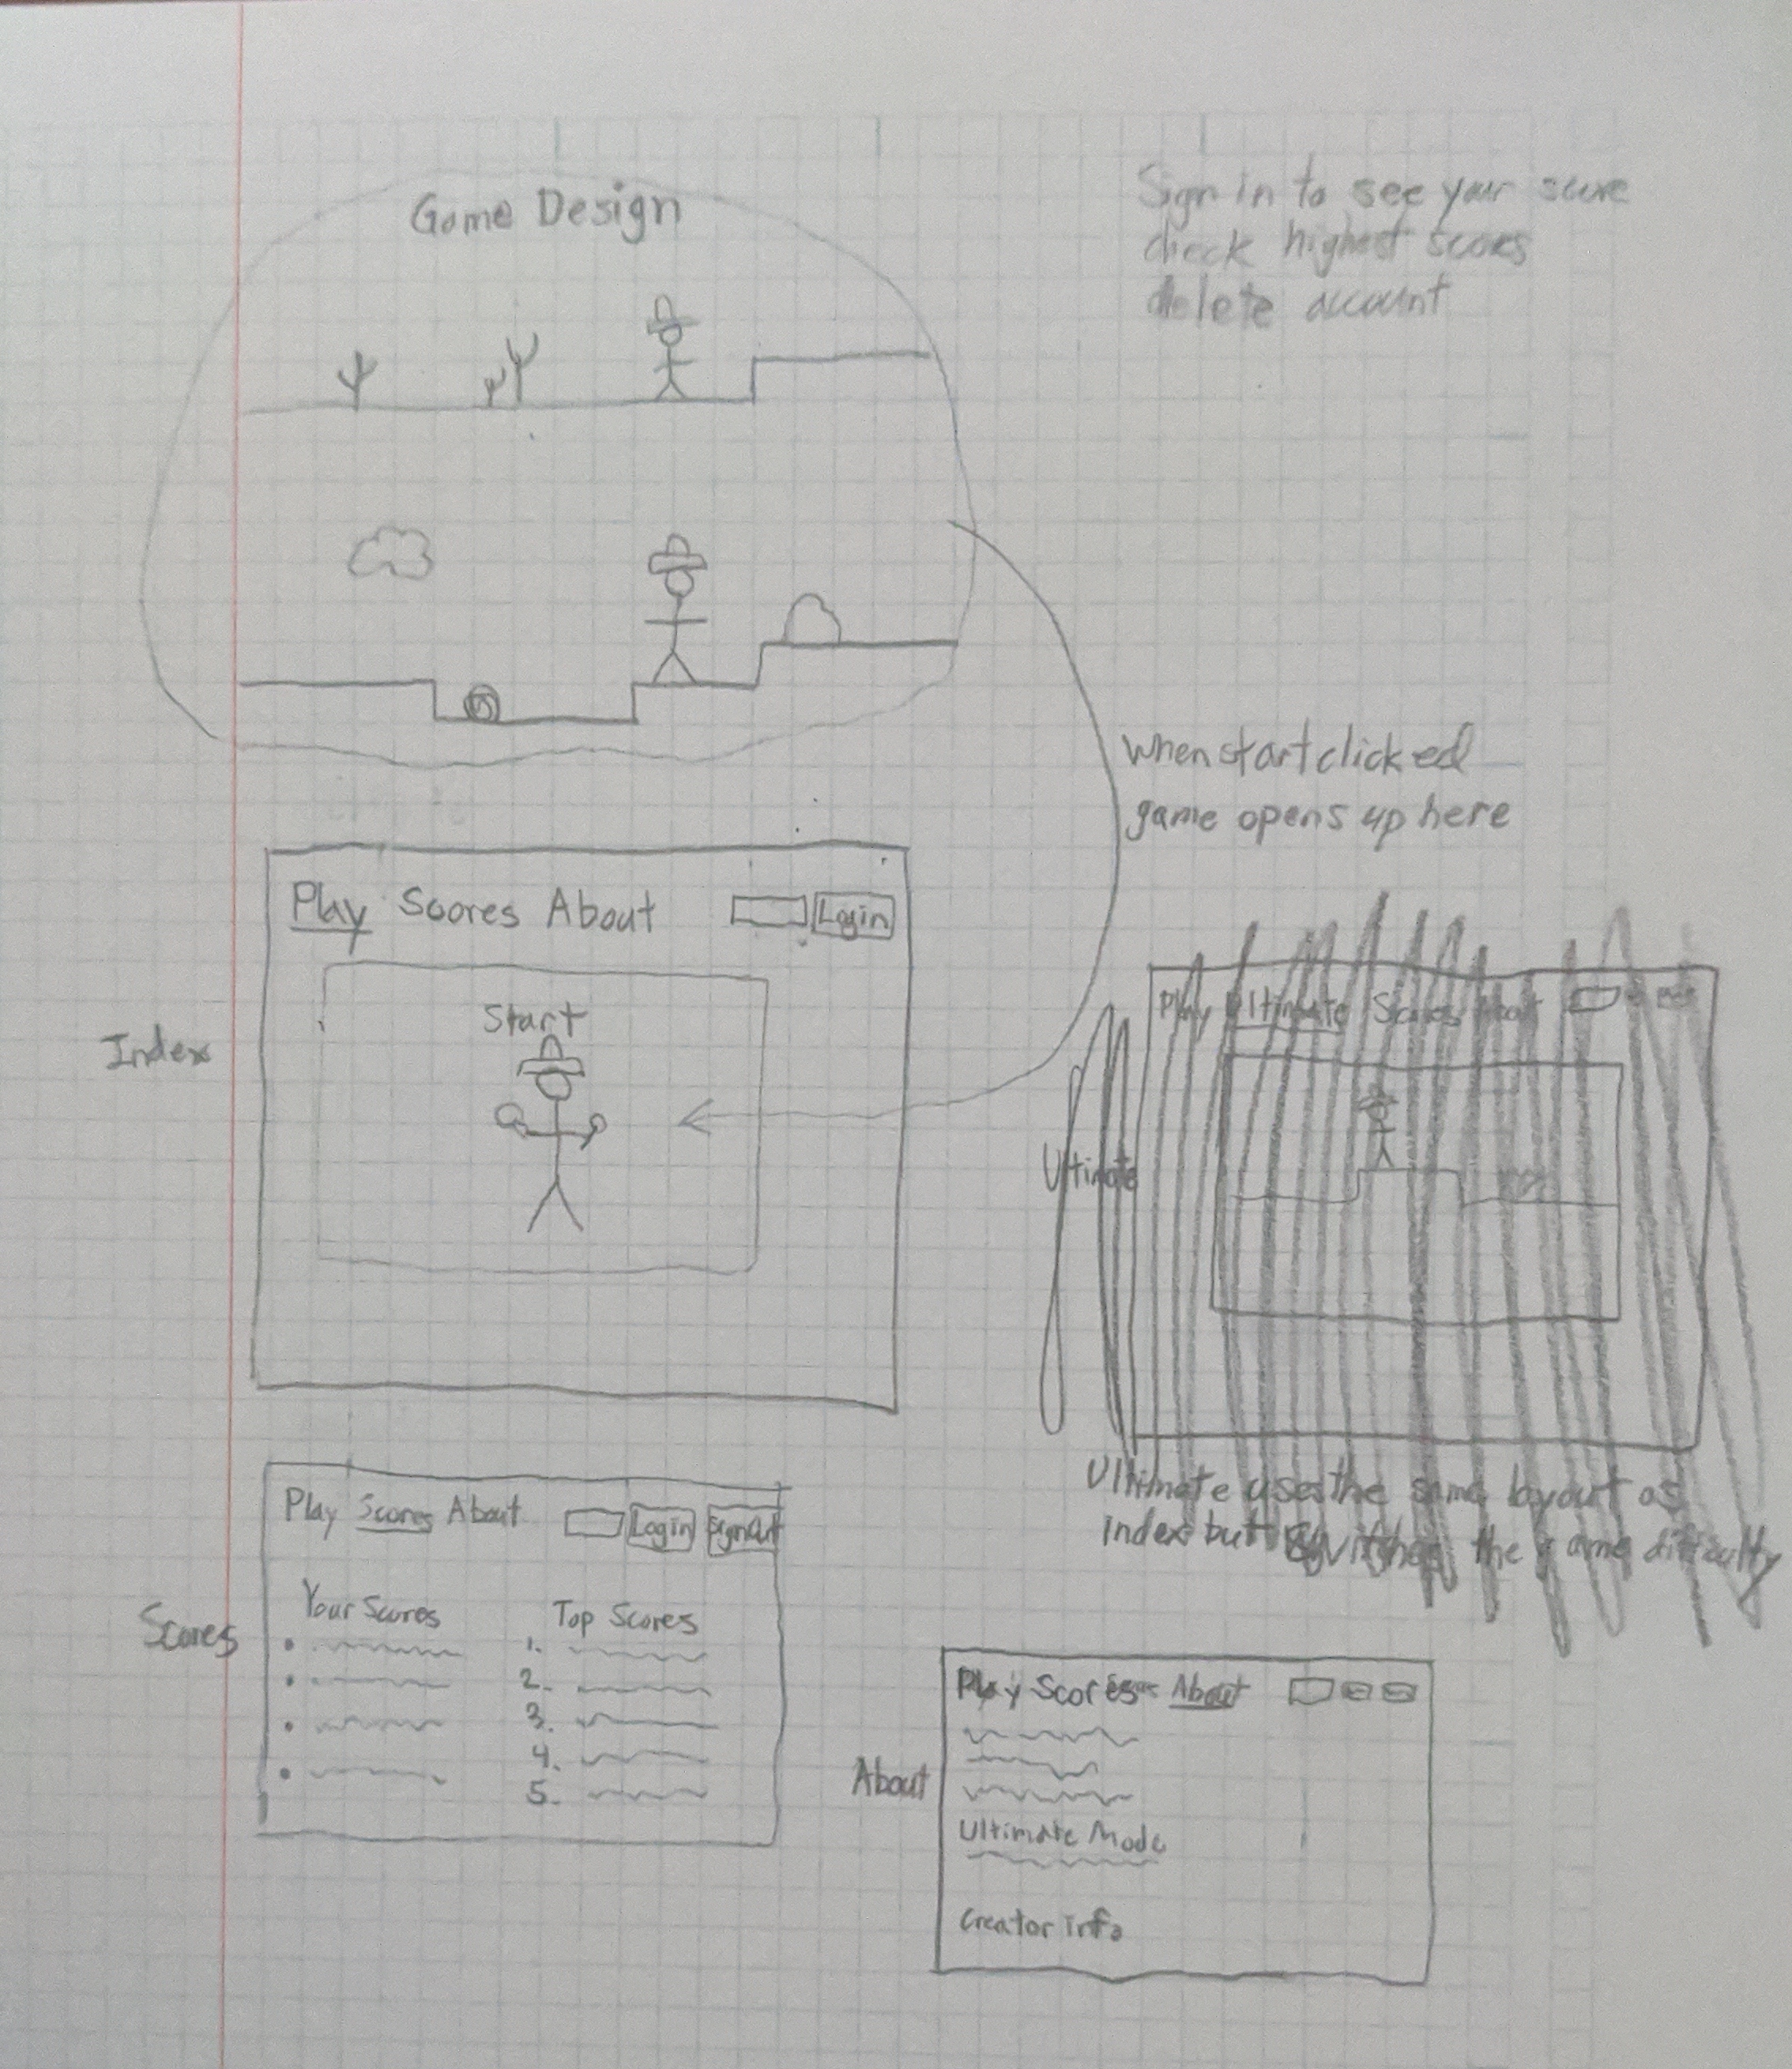 Game Design
Sign in to see your score
check highest scores
delete account
When start clicked
game opens up here
Index
Play Scores About
Login
Start
Ultimate
Play Ultimate Scores About
Ultimate uses the same layout as
index but switches the game difficulty
Scores
Play Scores About
Login
SignOut
Your Scores
Top Scores
1.
2.
3.
4.
5.
About
Play Scores About
Ultimate Mode
Creator info